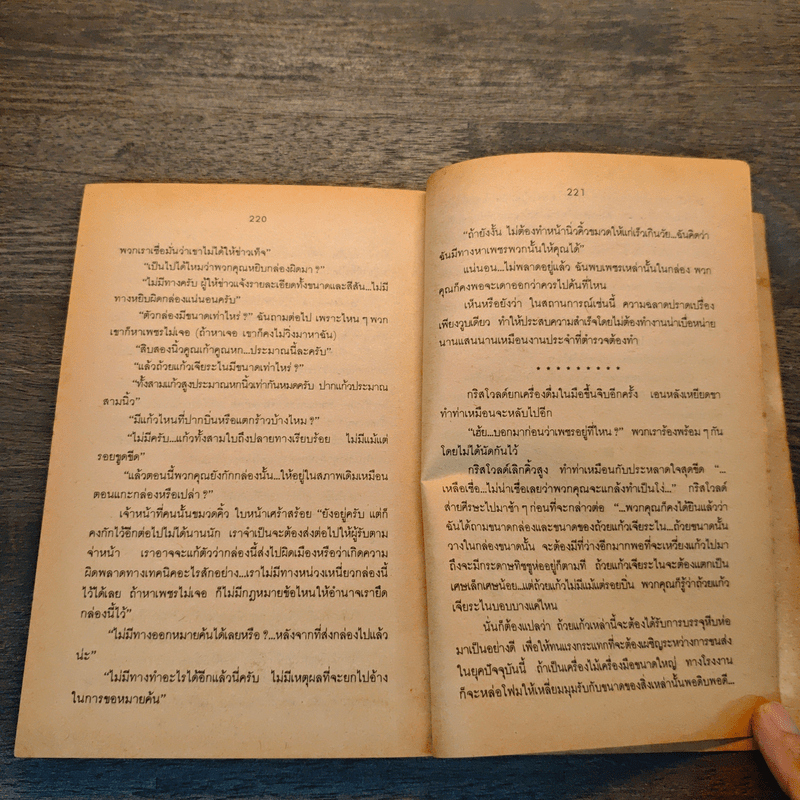 220
พวกเราเชื่อมั่นว่าเขาไม่ได้ให้ข่าวเท็จ”
“เป็นไปได้ไหมว่าพวกคุณหยิบกล่องผิดมา ?”
“ไม่มีทางครับ ผู้ให้ข่าวแจ้งรายละเอียดทั้งขนาดและสีสัน...ไม่มี
ทางหยิบผิดกล่องแน่นอนครับ”
“ตัวกล่องมีขนาดเท่าไหร่ ?” ฉันถามต่อไป เพราะไหน ๆ พวก
เขาก็หาเพชรไม่เจอ (ถ้าหาเจอ เขาก็คงไม่วิ่งมาหาฉัน)
“สิบสองนิ้วคูณเก้าคูณหก...ประมาณนี้ละครับ”
“แล้วถ้วยแก้วเจียระไนมีขนาดเท่าไหร่ ?”
“ทั้งสามแก้วสูงประมาณหกนิ้วเท่ากันหมดครับ ปากแก้วประมาณ
สามนิ้ว”
“มีแก้วไหนที่ปากบิ่นหรือแตกร้าวบ้างไหม ?”
“ไม่มีครับ...แก้วทั้งสามใบถึงปลายทางเรียบร้อย ไม่มีแม้แต่
รอยขูดขีด”
“แล้วตอนนี้พวกคุณยังกักกล่องนั้น...ให้อยู่ในสภาพเดิมเหมือน
ตอนแกะกล่องหรือเปล่า ?”
เจ้าหน้าที่คนนั้นขมวดคิ้ว ใบหน้าเศร้าสร้อย “ยังอยู่ครับ แต่ก็
คงกักไว้อีกต่อไปไม่ได้นานนัก เราจำเป็นจะต้องส่งต่อไปให้ผู้รับตาม
จ่าหน้า เราอาจจะแก้ตัวว่ากล่องนี้ส่งไปผิดเมืองหรือว่าเกิดความ
ผิดพลาดทางเทคนิคอะไรสักอย่าง...เราไม่มีทางหน่วงเหนี่ยวกล่องนี้
ไว้ได้เลย ถ้าหาเพชรไม่เจอ ก็ไม่มีกฎหมายข้อไหนให้อำนาจเรายึด
กล่องนี้ไว้”
“ไม่มีทางออกหมายค้นได้เลยหรือ ?...หลังจากที่ส่งกล่องไปแล้ว
น่ะ”
“ไม่มีทางทำอะไรได้อีกแล้วนี่ครับ ไม่มีเหตุผลที่จะยกไปอ้าง
ในการขอหมายค้น”
221
“ถ้ายังงั้น ไม่ต้องทำหน้านิ่วคิ้วขมวดให้แก่เร็วเกินวัย...ฉันคิดว่า
ฉันมีทางหาเพชรพวกนั้นให้คุณได้”
แน่นอน...ไม่พลาดอยู่แล้ว ฉันพบเพชรเหล่านั้นในกล่อง พวก
คุณก็คงพอจะเดาออกว่าควรไปค้นที่ไหน
เห็นหรือยังว่า ในสถานการณ์เช่นนี้ ความฉลาดปราดเปรื่อง
เพียงวูบเดียว ทำให้ประสบความสำเร็จโดยไม่ต้องทำงานน่าเบื่อหน่าย
นานแสนนานเหมือนงานประจำที่ตำรวจต้องทำ
* * * * * * * * *
กริสโวลด์ยกเครื่องดื่มในมือขึ้นจิบอีกครั้ง เอนหลังเหยียดขา
ทำท่าเหมือนจะหลับไปอีก
“เฮ้ย...บอกมาก่อนว่าเพชรอยู่ที่ไหน ?” พวกเราร้องพร้อม ๆ กัน
โดยไม่ได้นัดกันไว้
กริสโวลด์เลิกคิ้วสูง ทำท่าเหมือนกับประหลาดใจสุดขีด “...
เหลือเชื่อ...ไม่น่าเชื่อเลยว่าพวกคุณจะแกล้งทำเป็นโง่...” กริสโวลด์
ส่ายศีรษะไปมาช้า ๆ ก่อนที่จะกล่าวต่อ “...พวกคุณก็คงได้ยินแล้วว่า
ฉันได้ถามขนาดกล่องและขนาดของถ้วยแก้วเจียระไน...ถ้วยขนาดนั้น
วางในกล่องขนาดนั้น จะต้องมีที่ว่างอีกมากพอที่จะเหวี่ยงแก้วไปมา
ถึงจะมีกระดาษทิชชูห่ออยู่ก็ตามที ถ้วยแก้วเจียระไนจะต้องแตกเป็น
เศษเล็กเศษน้อย...แต่ถ้วยแก้วไม่มีแม้แต่รอยบิ่น พวกคุณก็รู้ว่าถ้วยแก้ว
เจียระไนบอบบางแค่ไหน
นั่นก็ต้องแปลว่า ถ้วยแก้วเหล่านี้จะต้องได้รับการบรรจุหีบห่อ
มาเป็นอย่างดี เพื่อให้ทนแรงกระแทกที่จะต้องเผชิญระหว่างการขนส่ง
ในยุคปัจจุบันนี้ ถ้าเป็นเครื่องไม้เครื่องมือขนาดใหญ่ ทางโรงงาน
ก็จะหล่อโฟมให้เหลี่ยมมุมรับกับขนาดของสิ่งเหล่านั้นพอดิบพอดี...